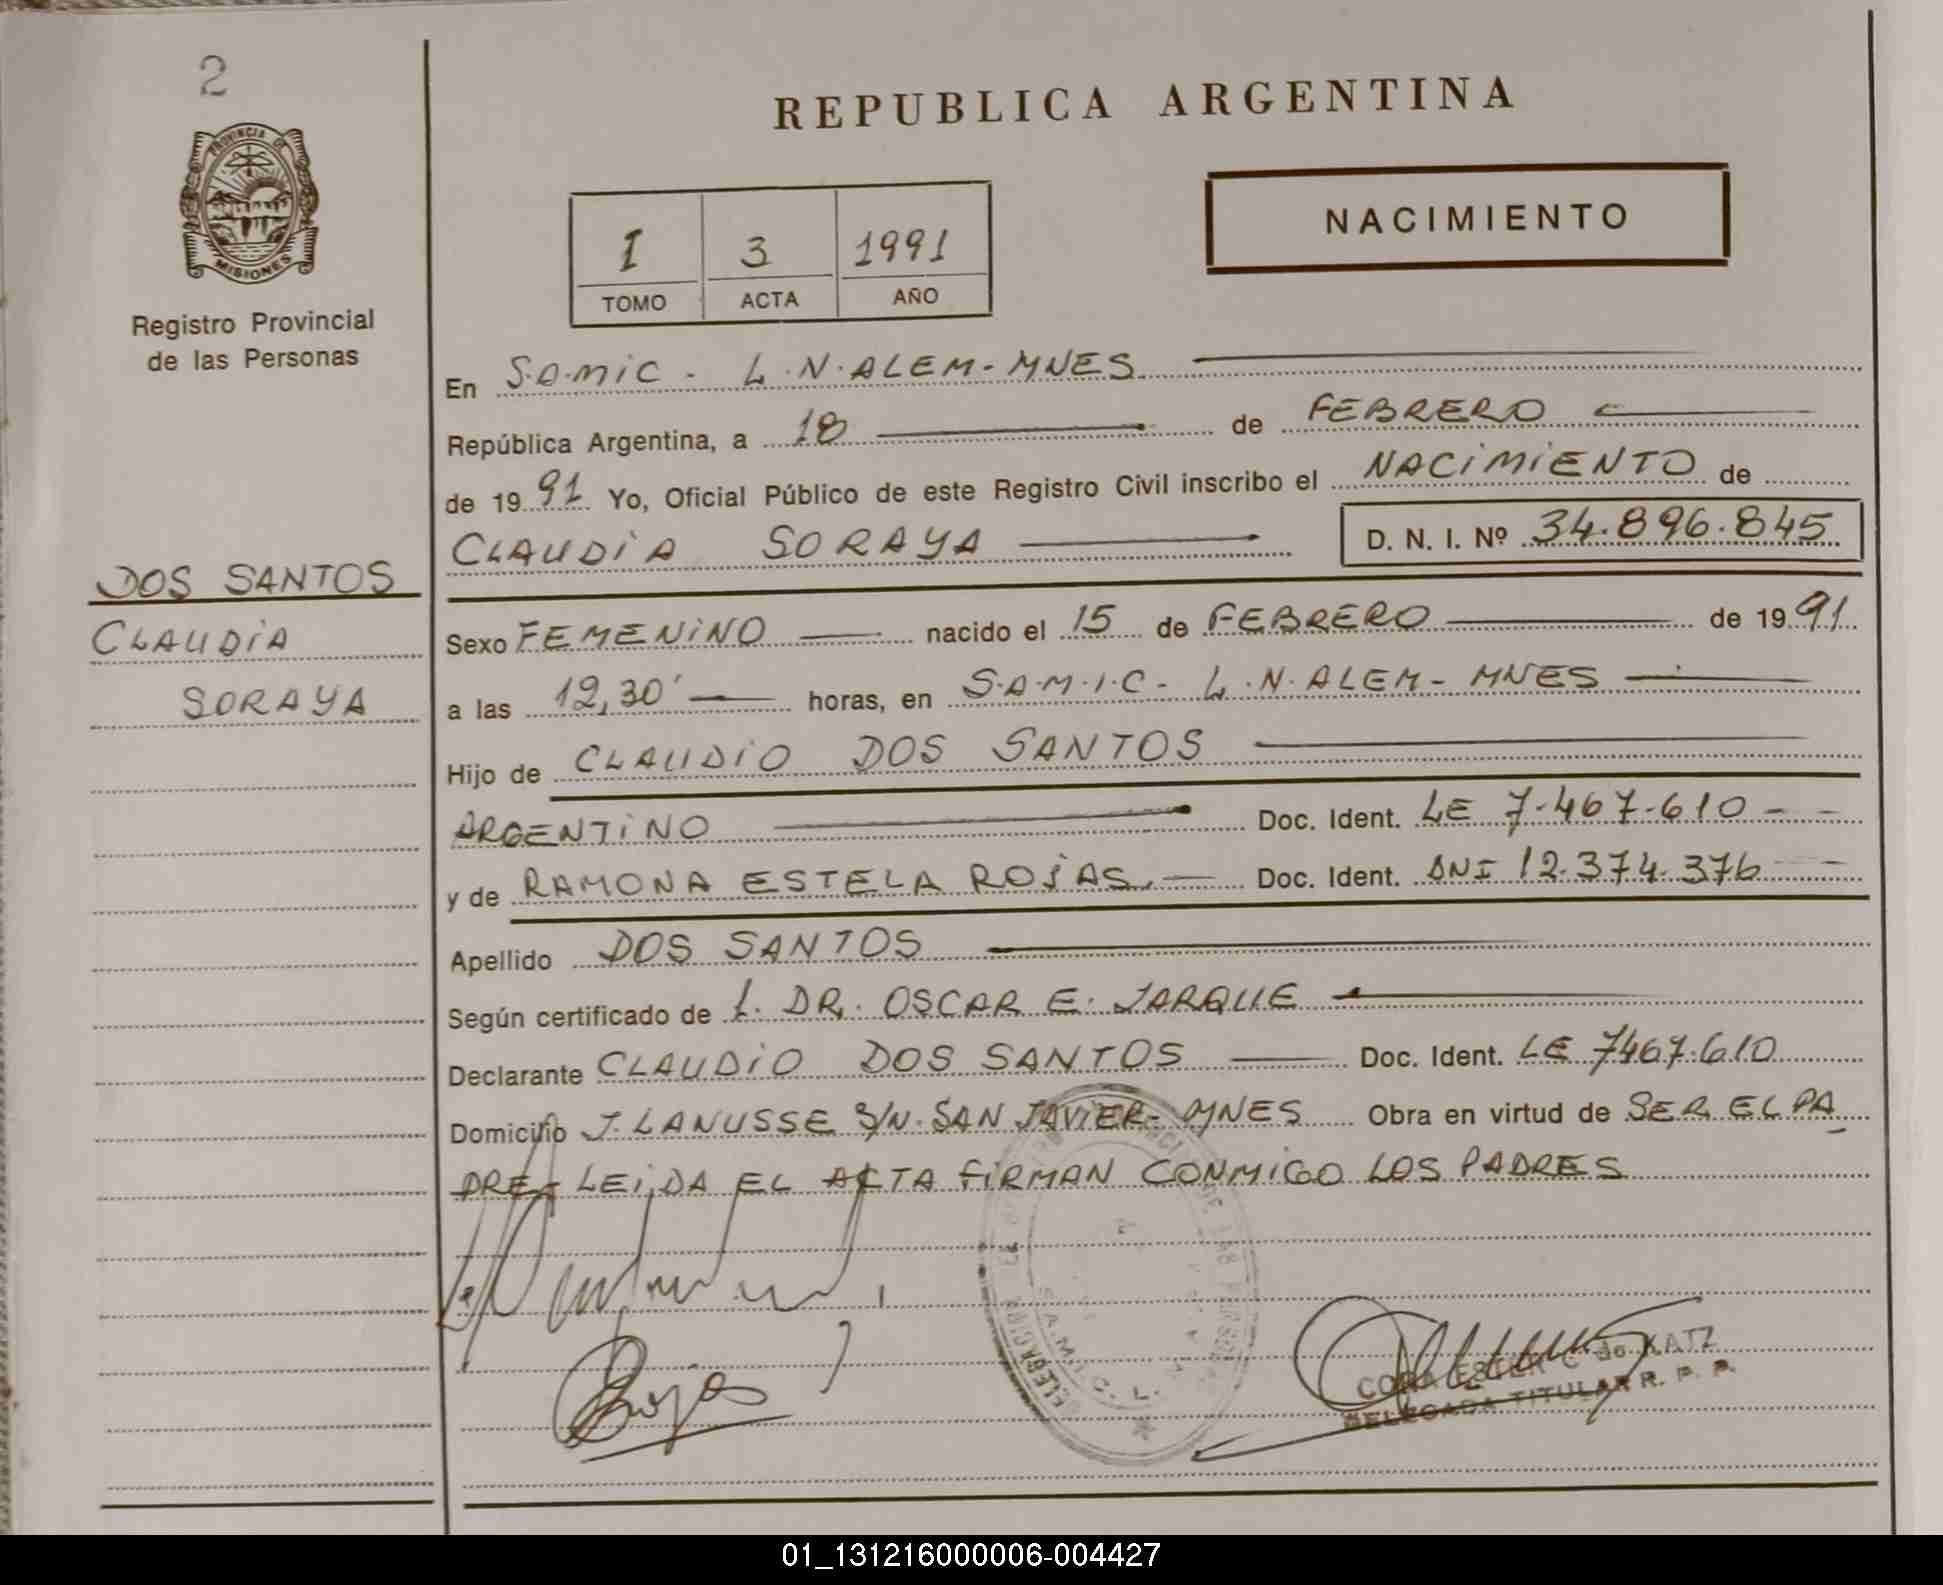 2
REPUBLICA ARGENTINA
PROVINCIA DE
MISIONES
Registro Provincial
de las Personas
NACIMIENTO
I 3 1991
TOMO ACTA AÑO
En S.A.MIC - L.N.ALEM-MNES
República Argentina, a 18 de FEBRERO
de 1991 Yo, Oficial Público de este Registro Civil inscribo el NACIMIENTO de
CLAUDIA SORAYA D. N. I. Nº 34.896.845
DOS SANTOS
CLAUDIA
SORAYA
Sexo FEMENINO nacido el 15 de FEBRERO de 1991
a las 12,30' horas, en S.A.M.I.C - L.N.ALEM - MNES
Hijo de CLAUDIO DOS SANTOS
ARGENTINO Doc. Ident. LE 7.467.610
y de RAMONA ESTELA ROJAS. Doc. Ident. DNI 12.374.376
Apellido DOS SANTOS
Según certificado de 1. DR. OSCAR E. JARQUE
Declarante CLAUDIO DOS SANTOS Doc. Ident. LE 7467.610
Domicilio J. LANUSSE S/N. SAN JAVIER - MNES Obra en virtud de SER EL PA
DRE - LEIDA EL ACTA FIRMAN CONMIGO LOS PADRES
Rojas
DELEGACION S.A.M.I.C. L.
CORA ESTER C. de KATZ
DELEGADA TITULAR R. P. P.
01_131216000006-004427